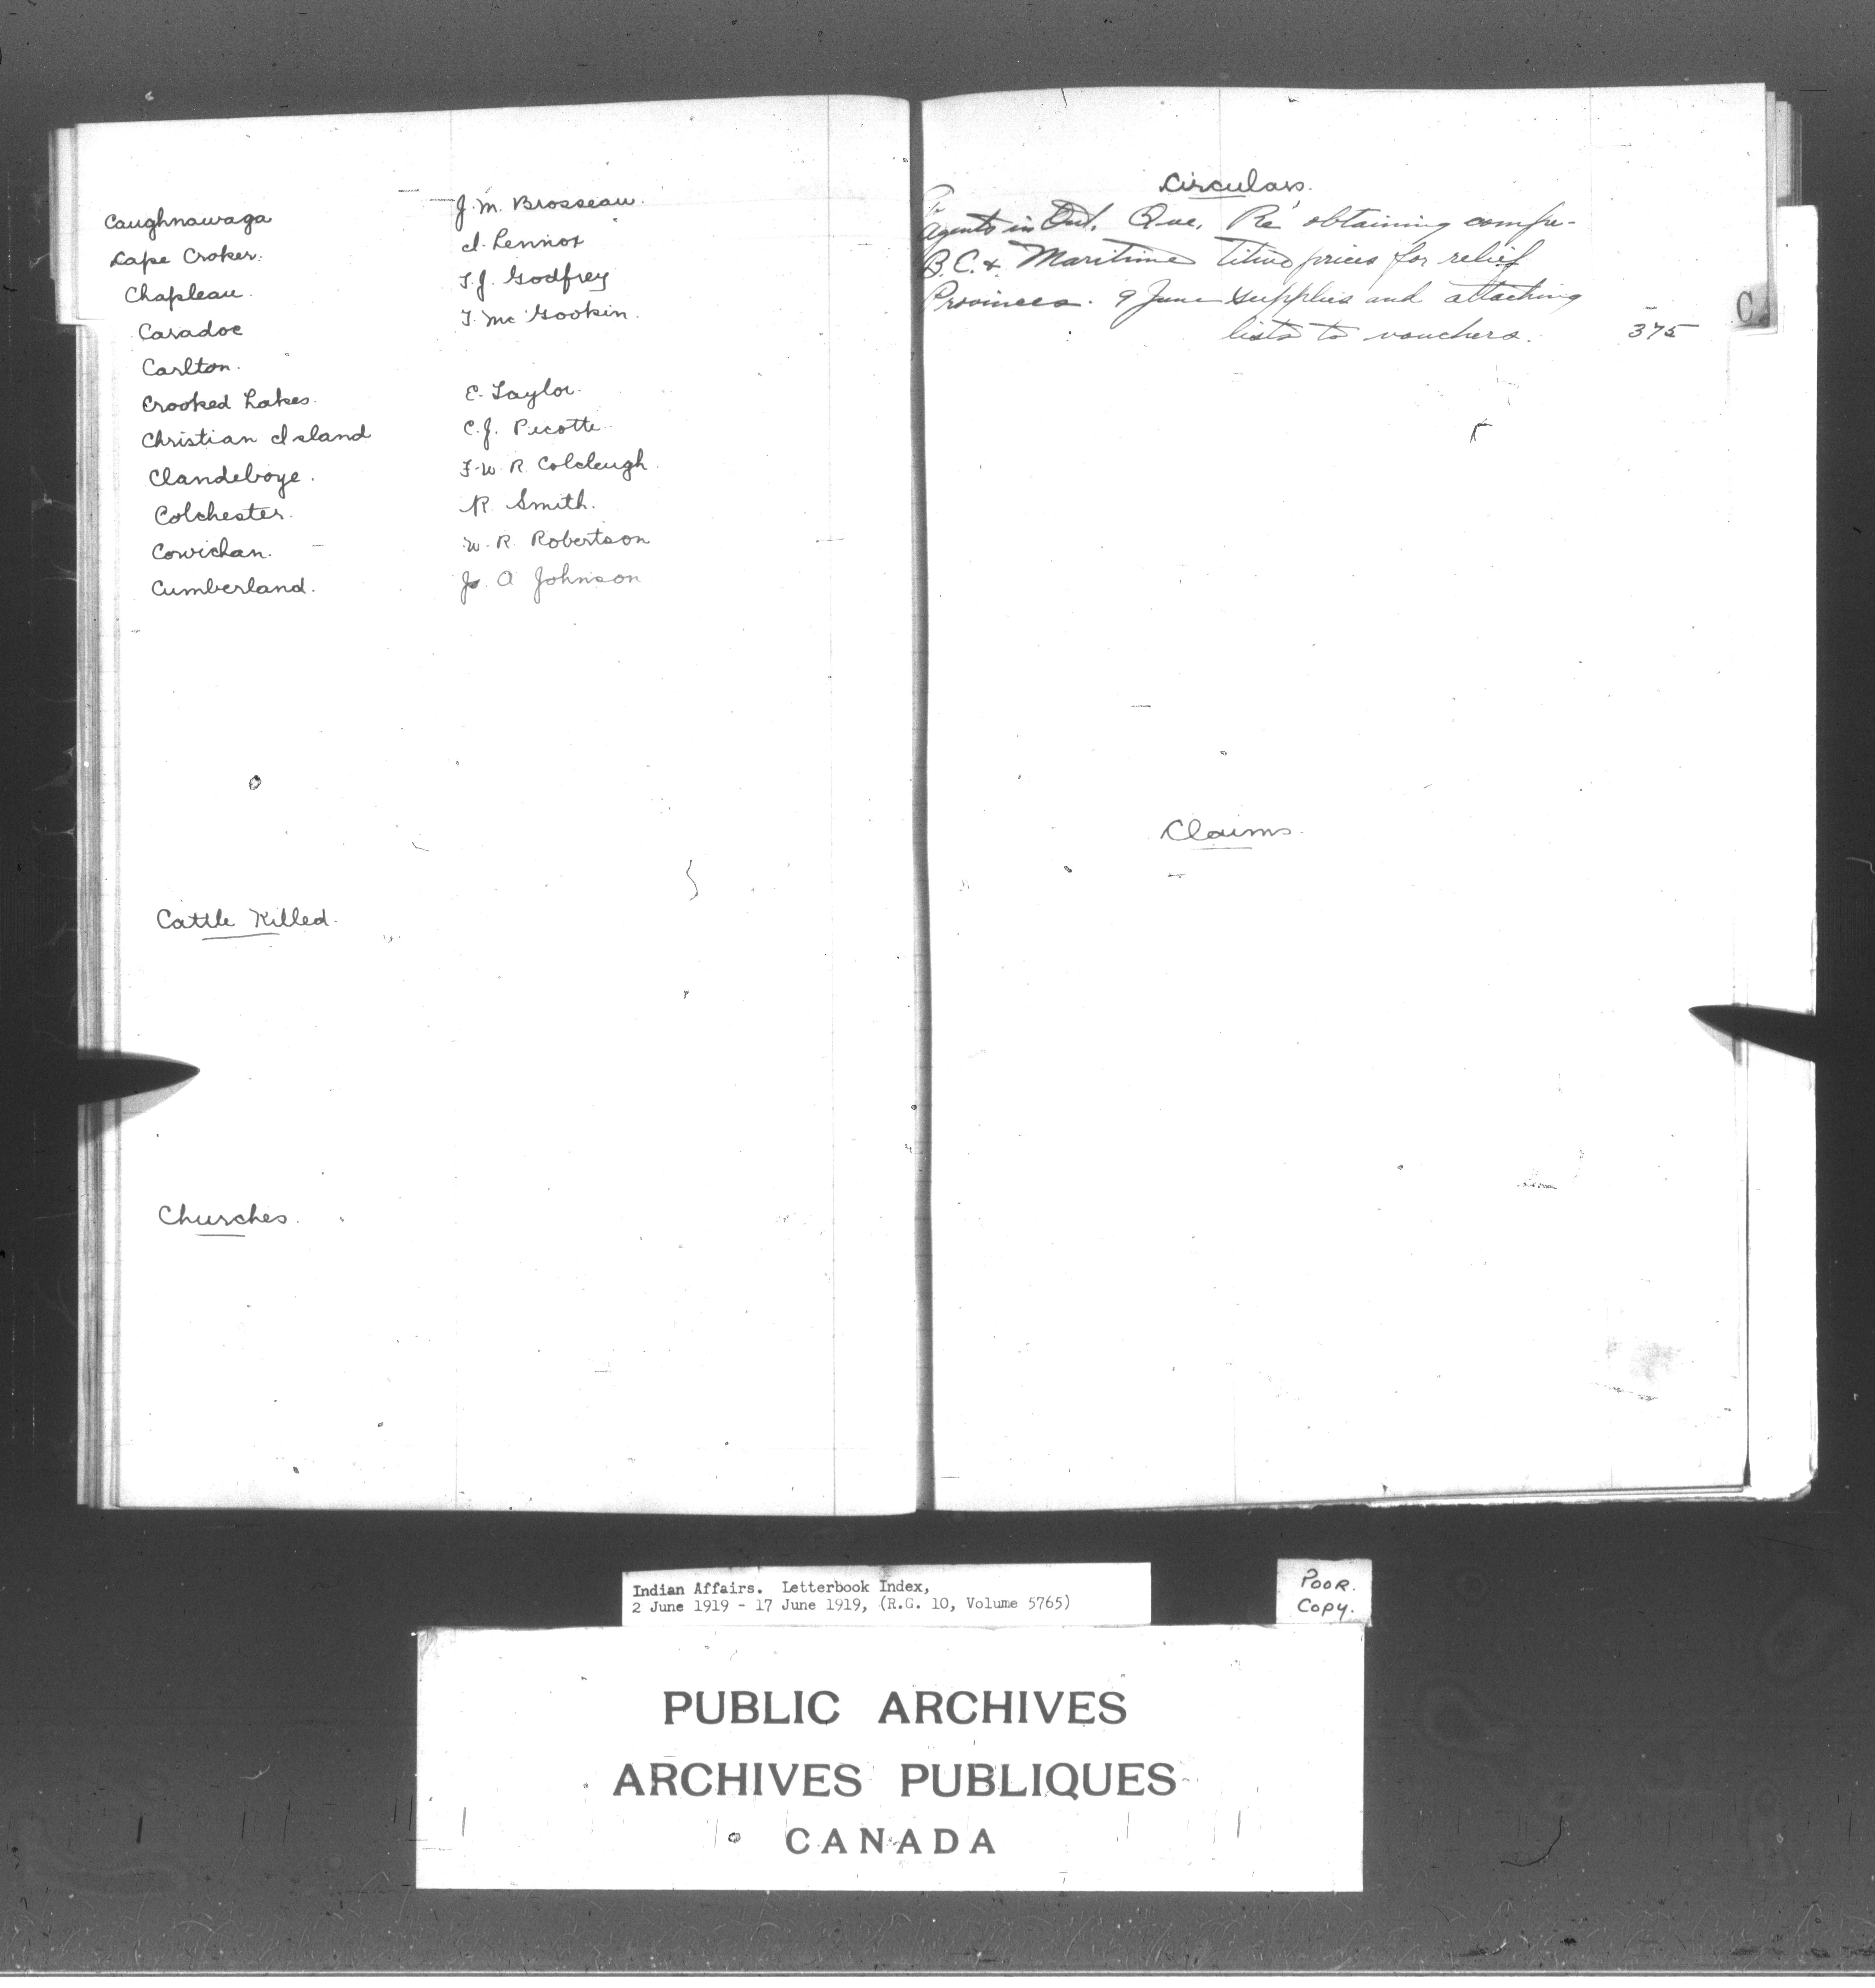 Caughnawaga J. M. Brosseau.
Cape Croker. I. Lennox
Chapleau. T. J. Godfrey
Caradoc T. McGookin.
Carlton.
Crooked Lakes. E. Taylor.
Christian Island C. J. Picotte
Clandeboye. F. W. R. Colcleugh.
Colchester. R Smith.
Cowichan. W. R. Robertson
Cumberland. A Johnson
Cattle Killed.
Churches.
Circulars.
To
Agents in Ont. Que. Re obtaining compe-
B.C. & Maritime titive prices for relief
Provinces. 9 June supplies and attaching
lists to vouchers. 375
C
Claims.
Indian Affairs. Letterbook Index,
2 June 1919 - 17 June 1919, (R.G. 10, Volume 5765)
POOR.
COPY.
PUBLIC ARCHIVES
ARCHIVES PUBLIQUES
CANADA